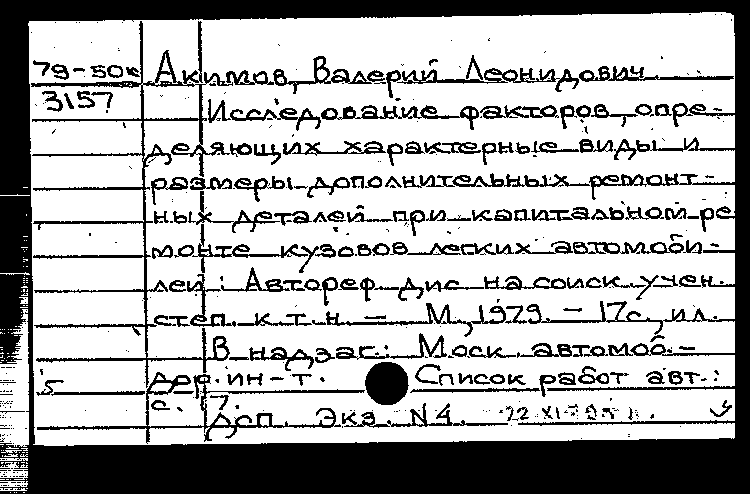 79-50к Акимов, Валерий Леонидович
3157 Исследование факторов, опре-
деляющих характерные виды и
размеры дополнительных ремонт-
ных деталей при капитальном ре
монте кузовов легких автомоби-
лей: Автореф. дис. на соиск. учен.
степ. к. т. н. — М., 1979. — 17с., ил.
В надзаг.: Моск. автомоб.-
5 дор. ин-т. Список работ авт.:
с. 17.
Доп. экз. N4.